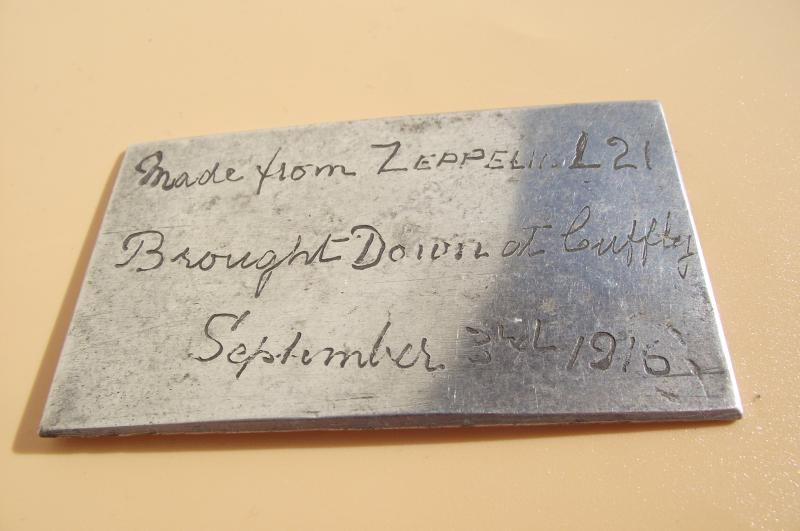 Made from ZEPPELIN L21
Brought Down at Cuffley
September 3rd 1916